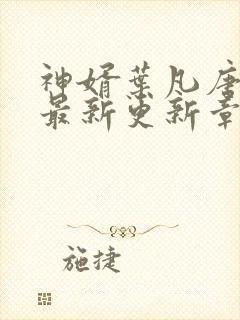 神婿葉凡唐
最新更新章
施捷